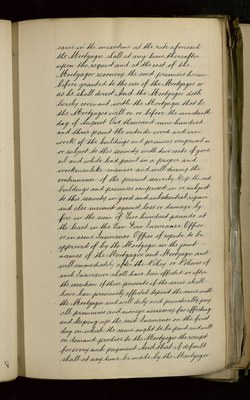 same in the meantime at the rate aforesaid
the Mortgagee shall at any time thereafter
upon the request and at the cost of the
Mortgagor reconvey the said premises herein-
before granted to the use of the Mortgagor or
as he shall direct And the Mortgagor doth
hereby covenant with the Mortgagee that he
the Mortgagor will on or before the nineteenth
day of August One thousand nine hundred
and three paint the outside wood and iron
work of the buildings and premises comprised in
or subject to this security with two coats of good
oil and white lead paint in a proper and
workmanlike manner and will during the
continuance of the present security keep the said
buildings and premises comprised in or subject
to this security in good and substantial repair
and also insured against loss or damage by
fire in the sum of Two hundred pounds at
the least in the Law Fire Insurance Office
or in some Insurance Office of repute to be
approved of by the Mortgagee in the joint
names of the Mortgagor and Mortgagee and
will immediately after the Policy or Policies of
such Insurance shall have been effected or after
the execution of these presents if the same shall
have been previously effected deposit the same with
the Mortgagee and will duly and punctually pay
all premiums and moneys necessary for effecting
and keeping up the said Insurance on the first
day on which the same ought to be paid and will
on demand produce to the Mortgagee the receipt
for every such payment And that if default
shall at any time be made by the Mortgagor